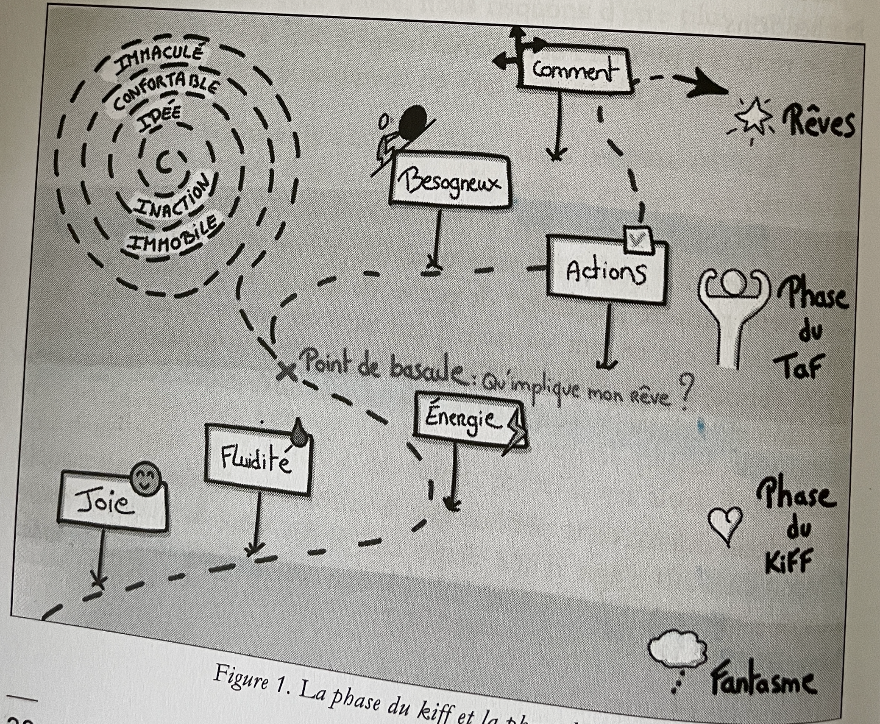 IMMACULÉ
CONFORTABLE
IDÉE
INACTION
IMMOBILE
Comment
Rêves
Besogneux
Actions
Phase
du
TaF
Point de bascule : Qu'implique mon rêve ?
Énergie
Fluidité
Joie
Phase
du
KiFF
Fantasme
Figure 1. La phase du kiff et la